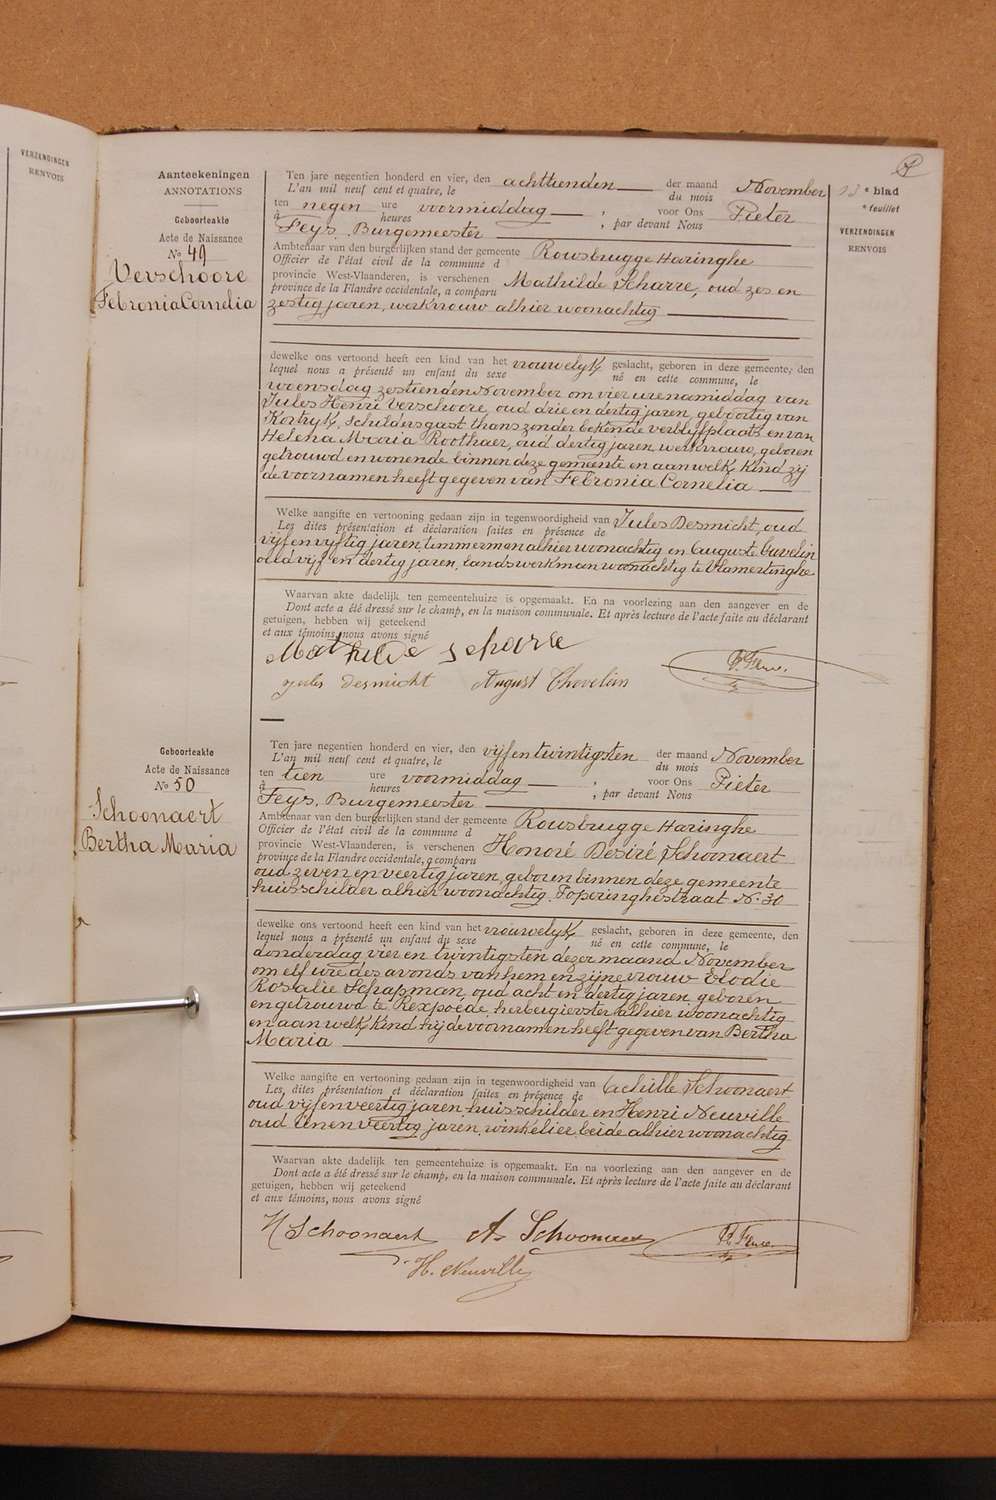 VERZENDINGEN
RENVOIS
Aanteekeningen
ANNOTATIONS
13e blad
e feuillet
VERZENDINGEN
RENVOIS
Geboorteakte
Acte de Naissance
No 49
Verschoore
Febronia Cornelia
Ten jare negentien honderd en vier, den achttienden der maand November
L'an mil neuf cent et quatre, le du mois
ten negen ure voormiddag, voor Ons Pieter
à heures , par devant Nous
Feys, Burgemeester
Ambtenaar van den burgerlijken stand der gemeente Rousbrugge Haringhe
Officier de l'état civil de la commune d
provincie West-Vlaanderen, is verschenen Mathilde Scharre, oud zes en
province de la Flandre occidentale, a comparu
zestig jaren, werkvrouw alhier woonachtig
dewelke ons vertoond heeft een kind van het vrouwelyk geslacht, geboren in deze gemeente, den
lequel nous a présenté un enfant du sexe né en cette commune, le
woensdag zestienden November om vier ure namiddag van
Jules Henri Verschoore, oud drie en dertig jaren, geboortig van
Kortryk, schildersgast thans zonder bekende verblyfplaats en van
Helena Maria Roothaer, oud dertig jaren, werkvrouw, geboren
getrouwd en wonende binnen deze gemeente en aan welk kind zij
de voornamen heeft gegeven van Febronia Cornelia
Welke aangifte en vertooning gedaan zijn in tegenwoordigheid van Jules Desmicht, oud
Les dites présentation et déclaration faites en présence de
vijf en vijftig jaren, timmerman alhier woonachtig en Auguste Cuvelin
oud vijf en dertig jaren, landswerkman woonachtig te Vlamertinghe
Waarvan akte dadelijk ten gemeentehuize is opgemaakt. En na voorlezing aan den aangever en de
Dont acte a été dressé sur le champ, en la maison communale. Et après lecture de l'acte faite au déclarant
getuigen, hebben wij geteekend
et aux témoins, nous avons signé
Mathilde Scharre
P. Feys.
Jules Desmicht August Chevelin
Geboorteakte
Acte de Naissance
No 50
Schoonaert
Bertha Maria
Ten jare negentien honderd en vier, den vijfentwintigsten der maand November
L'an mil neuf cent et quatre, le du mois
ten tien ure voormiddag, voor Ons Pieter
à heures , par devant Nous
Feys, Burgemeester
Ambtenaar van den burgerlijken stand der gemeente Rousbrugge Haringhe
Officier de l'état civil de la commune d
provincie West-Vlaanderen, is verschenen Honoré Desiré Schoonaert
province de la Flandre occidentale, a comparu
oud zeven en veertig jaren, geboren binnen deze gemeente
huisschilder alhier woonachtig, Poperinghestraat N. 30
dewelke ons vertoond heeft een kind van het vrouwelyk geslacht, geboren in deze gemeente, den
lequel nous a présenté un enfant du sexe né en cette commune, le
donderdag vier en twintigsten dezer maand November
om elf ure des avonds van hem en zijne vrouw Elodie
Rosalie Schapman, oud acht en dertig jaren, geboren
en getrouwd te Rexpoede, herbergierster alhier woonachtig
en aan welk kind hij de voornamen heeft gegeven van Bertha
Maria
Welke aangifte en vertooning gedaan zijn in tegenwoordigheid van Achille Schoonaert
Les dites présentation et déclaration faites en présence de
oud vijf en veertig jaren huisschilder en Henri Neuville
oud een en veertig jaren, winkelier, beide alhier woonachtig
Waarvan akte dadelijk ten gemeentehuize is opgemaakt. En na voorlezing aan den aangever en de
Dont acte a été dressé sur le champ, en la maison communale. Et après lecture de l'acte faite au déclarant
getuigen, hebben wij geteekend
et aux témoins, nous avons signé
H Schoonaert A Schoonaert P. Feys.
H. Neuville